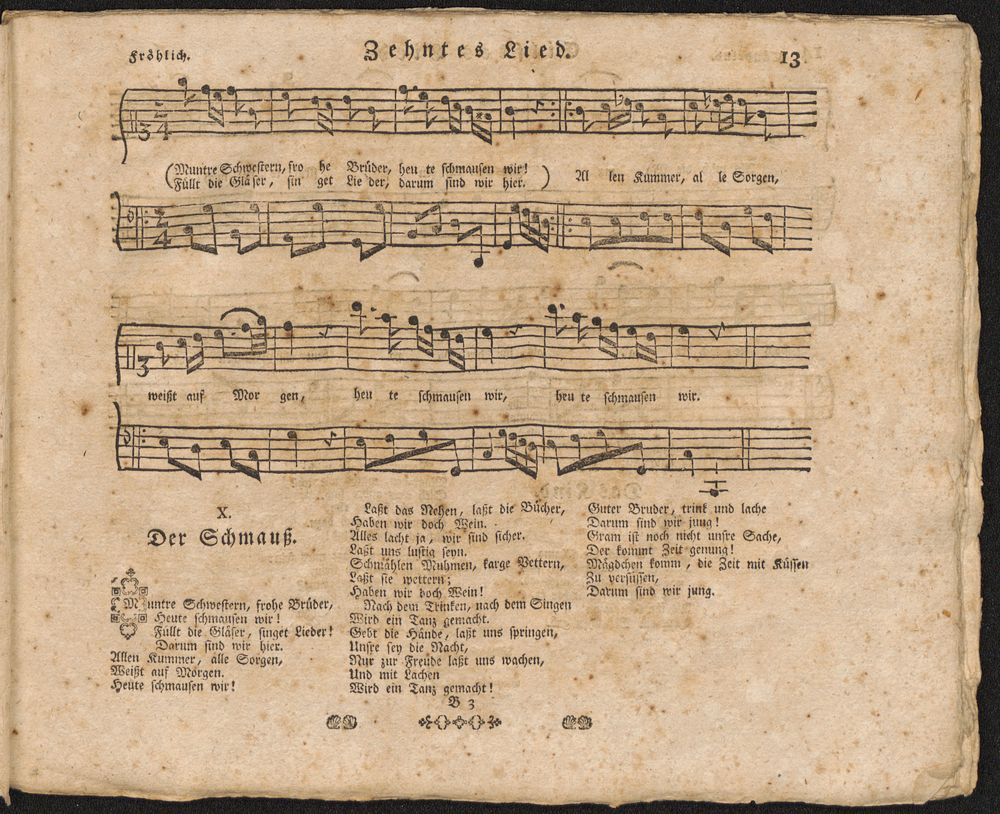 Fröhlich.
Zehntes Lied.
13
(Muntre Schwestern, fro he Brüder, heu te schmausen wir!)
(Füllt die Gläser, sin get Lie der, darum sind wir hier.)
Al len Kummer, al le Sorgen,
weißt auf Mor gen, heu te schmausen wir, heu te schmausen wir.
X.
Der Schmauß.
Muntre Schwestern, frohe Brüder,
Heute schmausen wir!
Füllt die Gläser, singet Lieder!
Darum sind wir hier.
Allen Kummer, alle Sorgen,
Weißt auf Morgen.
Heute schmausen wir!
Laßt das Nehen, laßt die Bücher,
Haben wir doch Wein.
Alles lacht ja, wir sind sicher.
Laßt uns lustig seyn.
Schmählen Muhmen, karge Vettern,
Laßt sie wettern;
Haben wir doch Wein!
Nach dem Trinken, nach dem Singen
Wird ein Tanz gemacht.
Gebt die Hände, laßt uns springen,
Unsre sey die Nacht,
Nur zur Freude laßt uns wachen,
Und mit Lachen
Wird ein Tanz gemacht!
Guter Bruder, trink und lache
Darum sind wir jung!
Gram ist noch nicht unsre Sache,
Der kommt Zeit genung!
Mägdchen komm, die Zeit mit Küssen
Zu versüssen,
Darum sind wir jung.
B 3